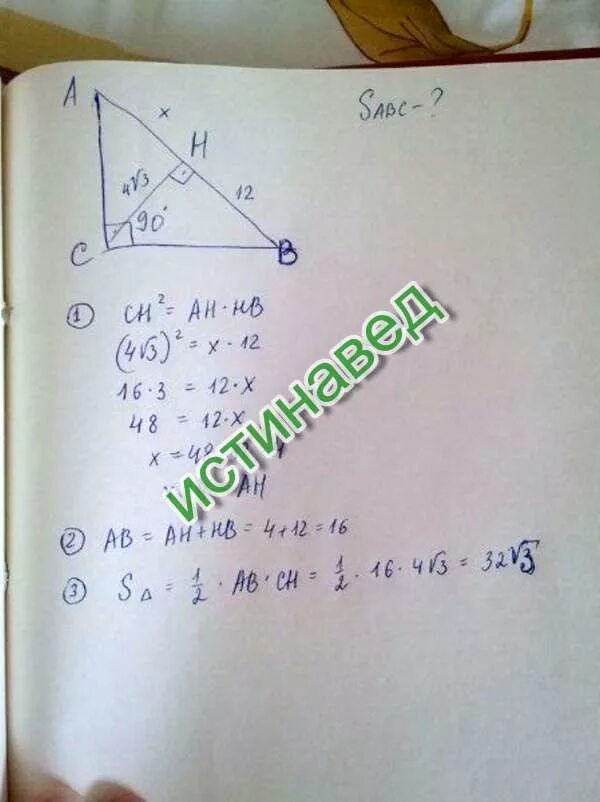 A
x
SABC-?
H
4√3
12
90°
C
B
① CH² = AH · HB
(4√3)² = x · 12
16 · 3 = 12 · x
48 = 12 · x
x =
AH
② AB = AH + HB = 4 + 12 = 16
③ S△ = 1/2 · AB · CH = 1/2 · 16 · 4√3 = 32√3
истинавед